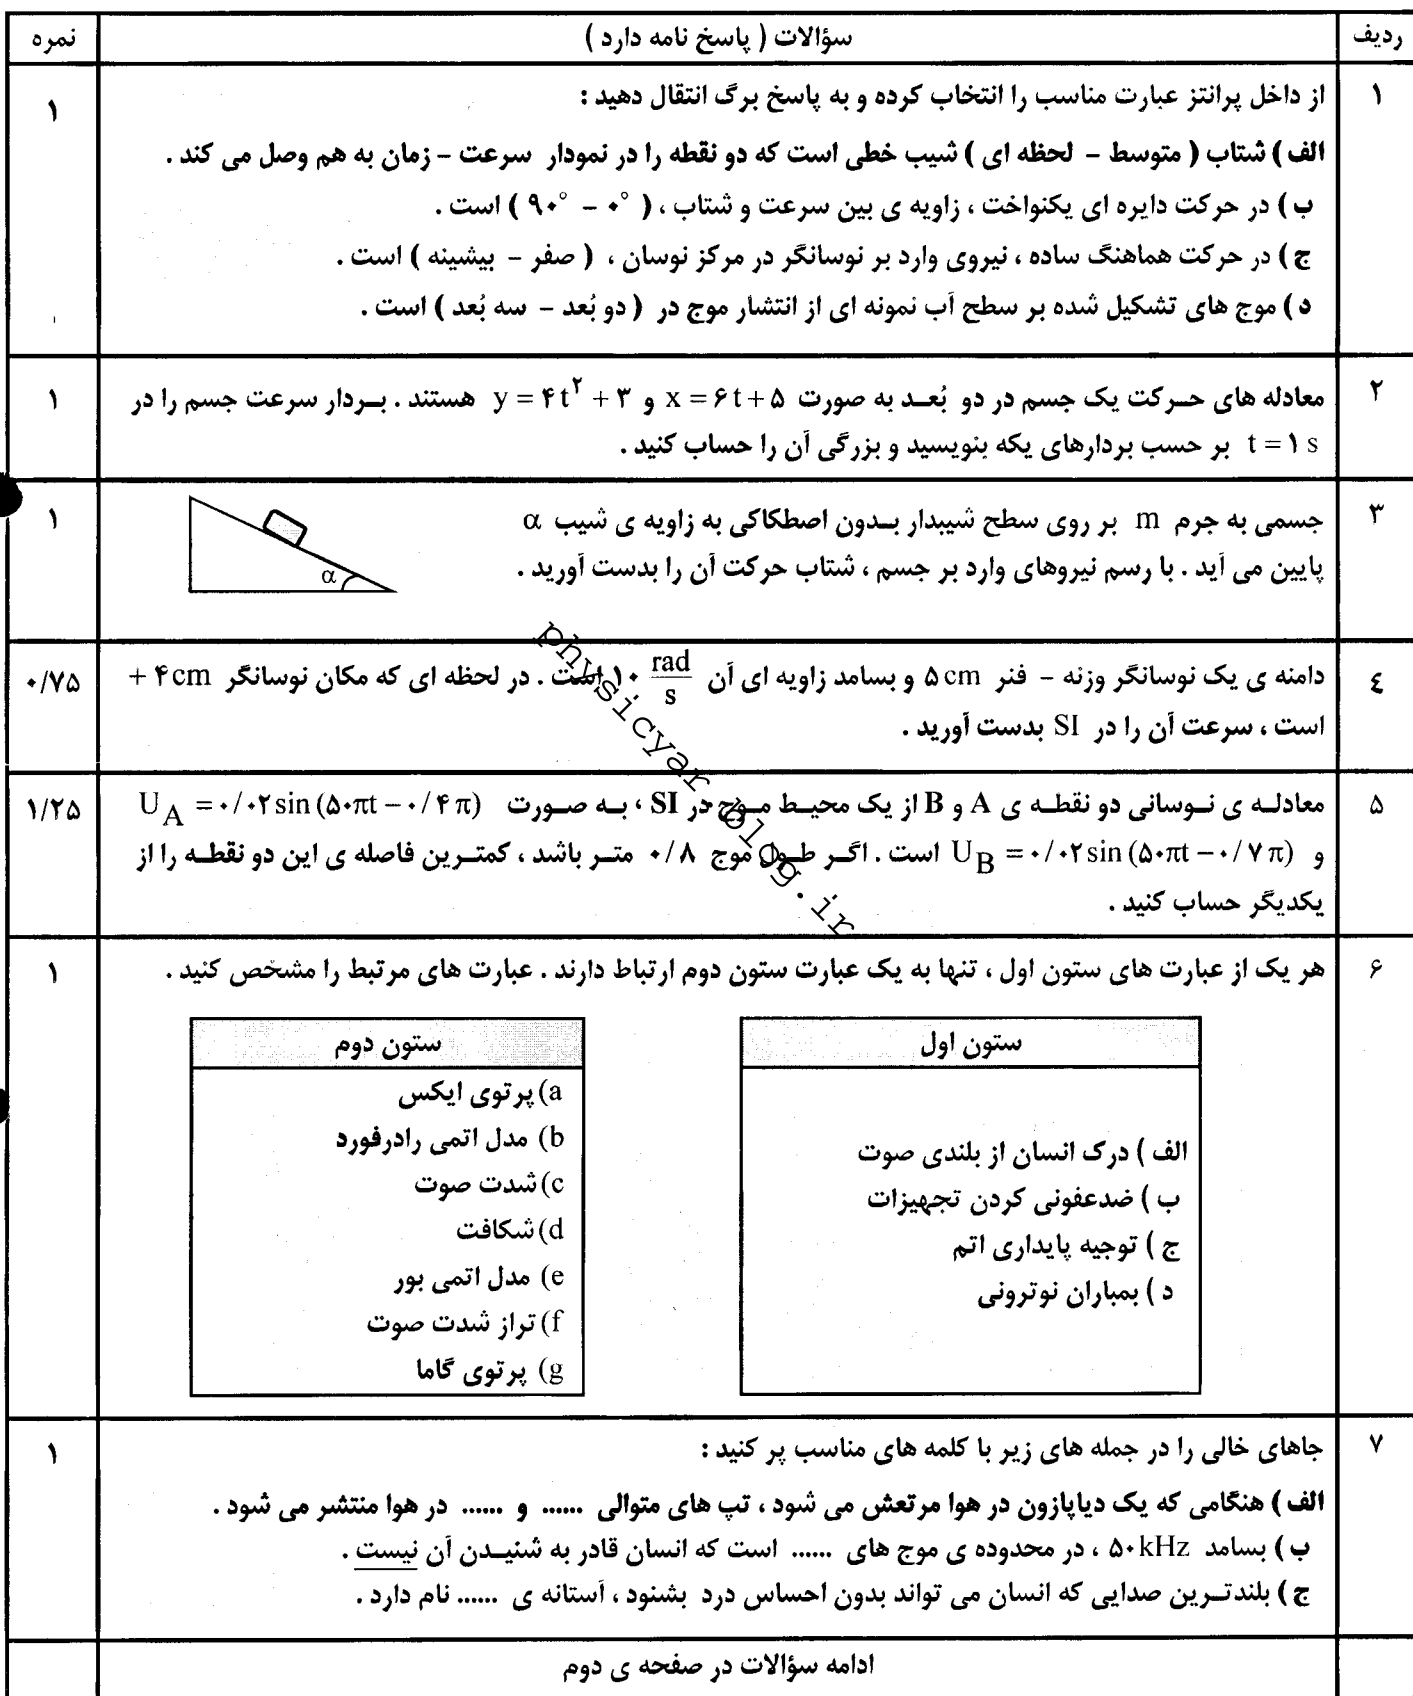 ردیف سؤالات ( پاسخ نامه دارد ) نمره
۱ از داخل پرانتز عبارت مناسب را انتخاب کرده و به پاسخ برگ انتقال دهید : ۱
الف ) شتاب ( متوسط – لحظه ای ) شیب خطی است که دو نقطه را در نمودار سرعت – زمان به هم وصل می کند .
ب ) در حرکت دایره ای یکنواخت ، زاویه ی بین سرعت و شتاب ، ( ۰° – ۹۰° ) است .
ج ) در حرکت هماهنگ ساده ، نیروی وارد بر نوسانگر در مرکز نوسان ، ( صفر – بیشینه ) است .
د ) موج های تشکیل شده بر سطح آب نمونه ای از انتشار موج در ( دو بُعد – سه بُعد ) است .
۲ معادله های حرکت یک جسم در دو بُعد به صورت x = ۶t + ۵ و y = ۴t² + ۳ هستند . بردار سرعت جسم را در ۱
t = ۱ s بر حسب بردارهای یکه بنویسید و بزرگی آن را حساب کنید .
۳ جسمی به جرم m بر روی سطح شیبدار بدون اصطکاکی به زاویه ی شیب α ۱
پایین می آید . با رسم نیروهای وارد بر جسم ، شتاب حرکت آن را بدست آورید .
α
۴ دامنه ی یک نوسانگر وزنه – فنر ۵ cm و بسامد زاویه ای آن ۱۰ rad/s است . در لحظه ای که مکان نوسانگر +۴cm ۰/۷۵
است ، سرعت آن را در SI بدست آورید .
۵ معادله ی نوسانی دو نقطه ی A و B از یک محیط موج در SI ، به صورت U_A = ۰/۰۲ sin (۵۰πt – ۰/۴π) ۱/۲۵
و U_B = ۰/۰۲ sin (۵۰πt – ۰/۷π) است . اگر طول موج ۰/۸ متر باشد ، کمترین فاصله ی این دو نقطه را از
یکدیگر حساب کنید .
physicyar.blog.ir
۶ هر یک از عبارت های ستون اول ، تنها به یک عبارت ستون دوم ارتباط دارند . عبارت های مرتبط را مشخص کنید . ۱
ستون اول
الف ) درک انسان از بلندی صوت
ب ) ضدعفونی کردن تجهیزات
ج ) توجیه پایداری اتم
د ) بمباران نوترونی
ستون دوم
a) پرتوی ایکس
b) مدل اتمی رادرفورد
c) شدت صوت
d) شکافت
e) مدل اتمی بور
f) تراز شدت صوت
g) پرتوی گاما
۷ جاهای خالی را در جمله های زیر با کلمه های مناسب پر کنید : ۱
الف ) هنگامی که یک دیاپازون در هوا مرتعش می شود ، تپ های متوالی ...... و ...... در هوا منتشر می شود .
ب ) بسامد ۵۰kHz ، در محدوده ی موج های ...... است که انسان قادر به شنیدن آن نیست .
ج ) بلندترین صدایی که انسان می تواند بدون احساس درد بشنود ، آستانه ی ...... نام دارد .
ادامه سؤالات در صفحه ی دوم